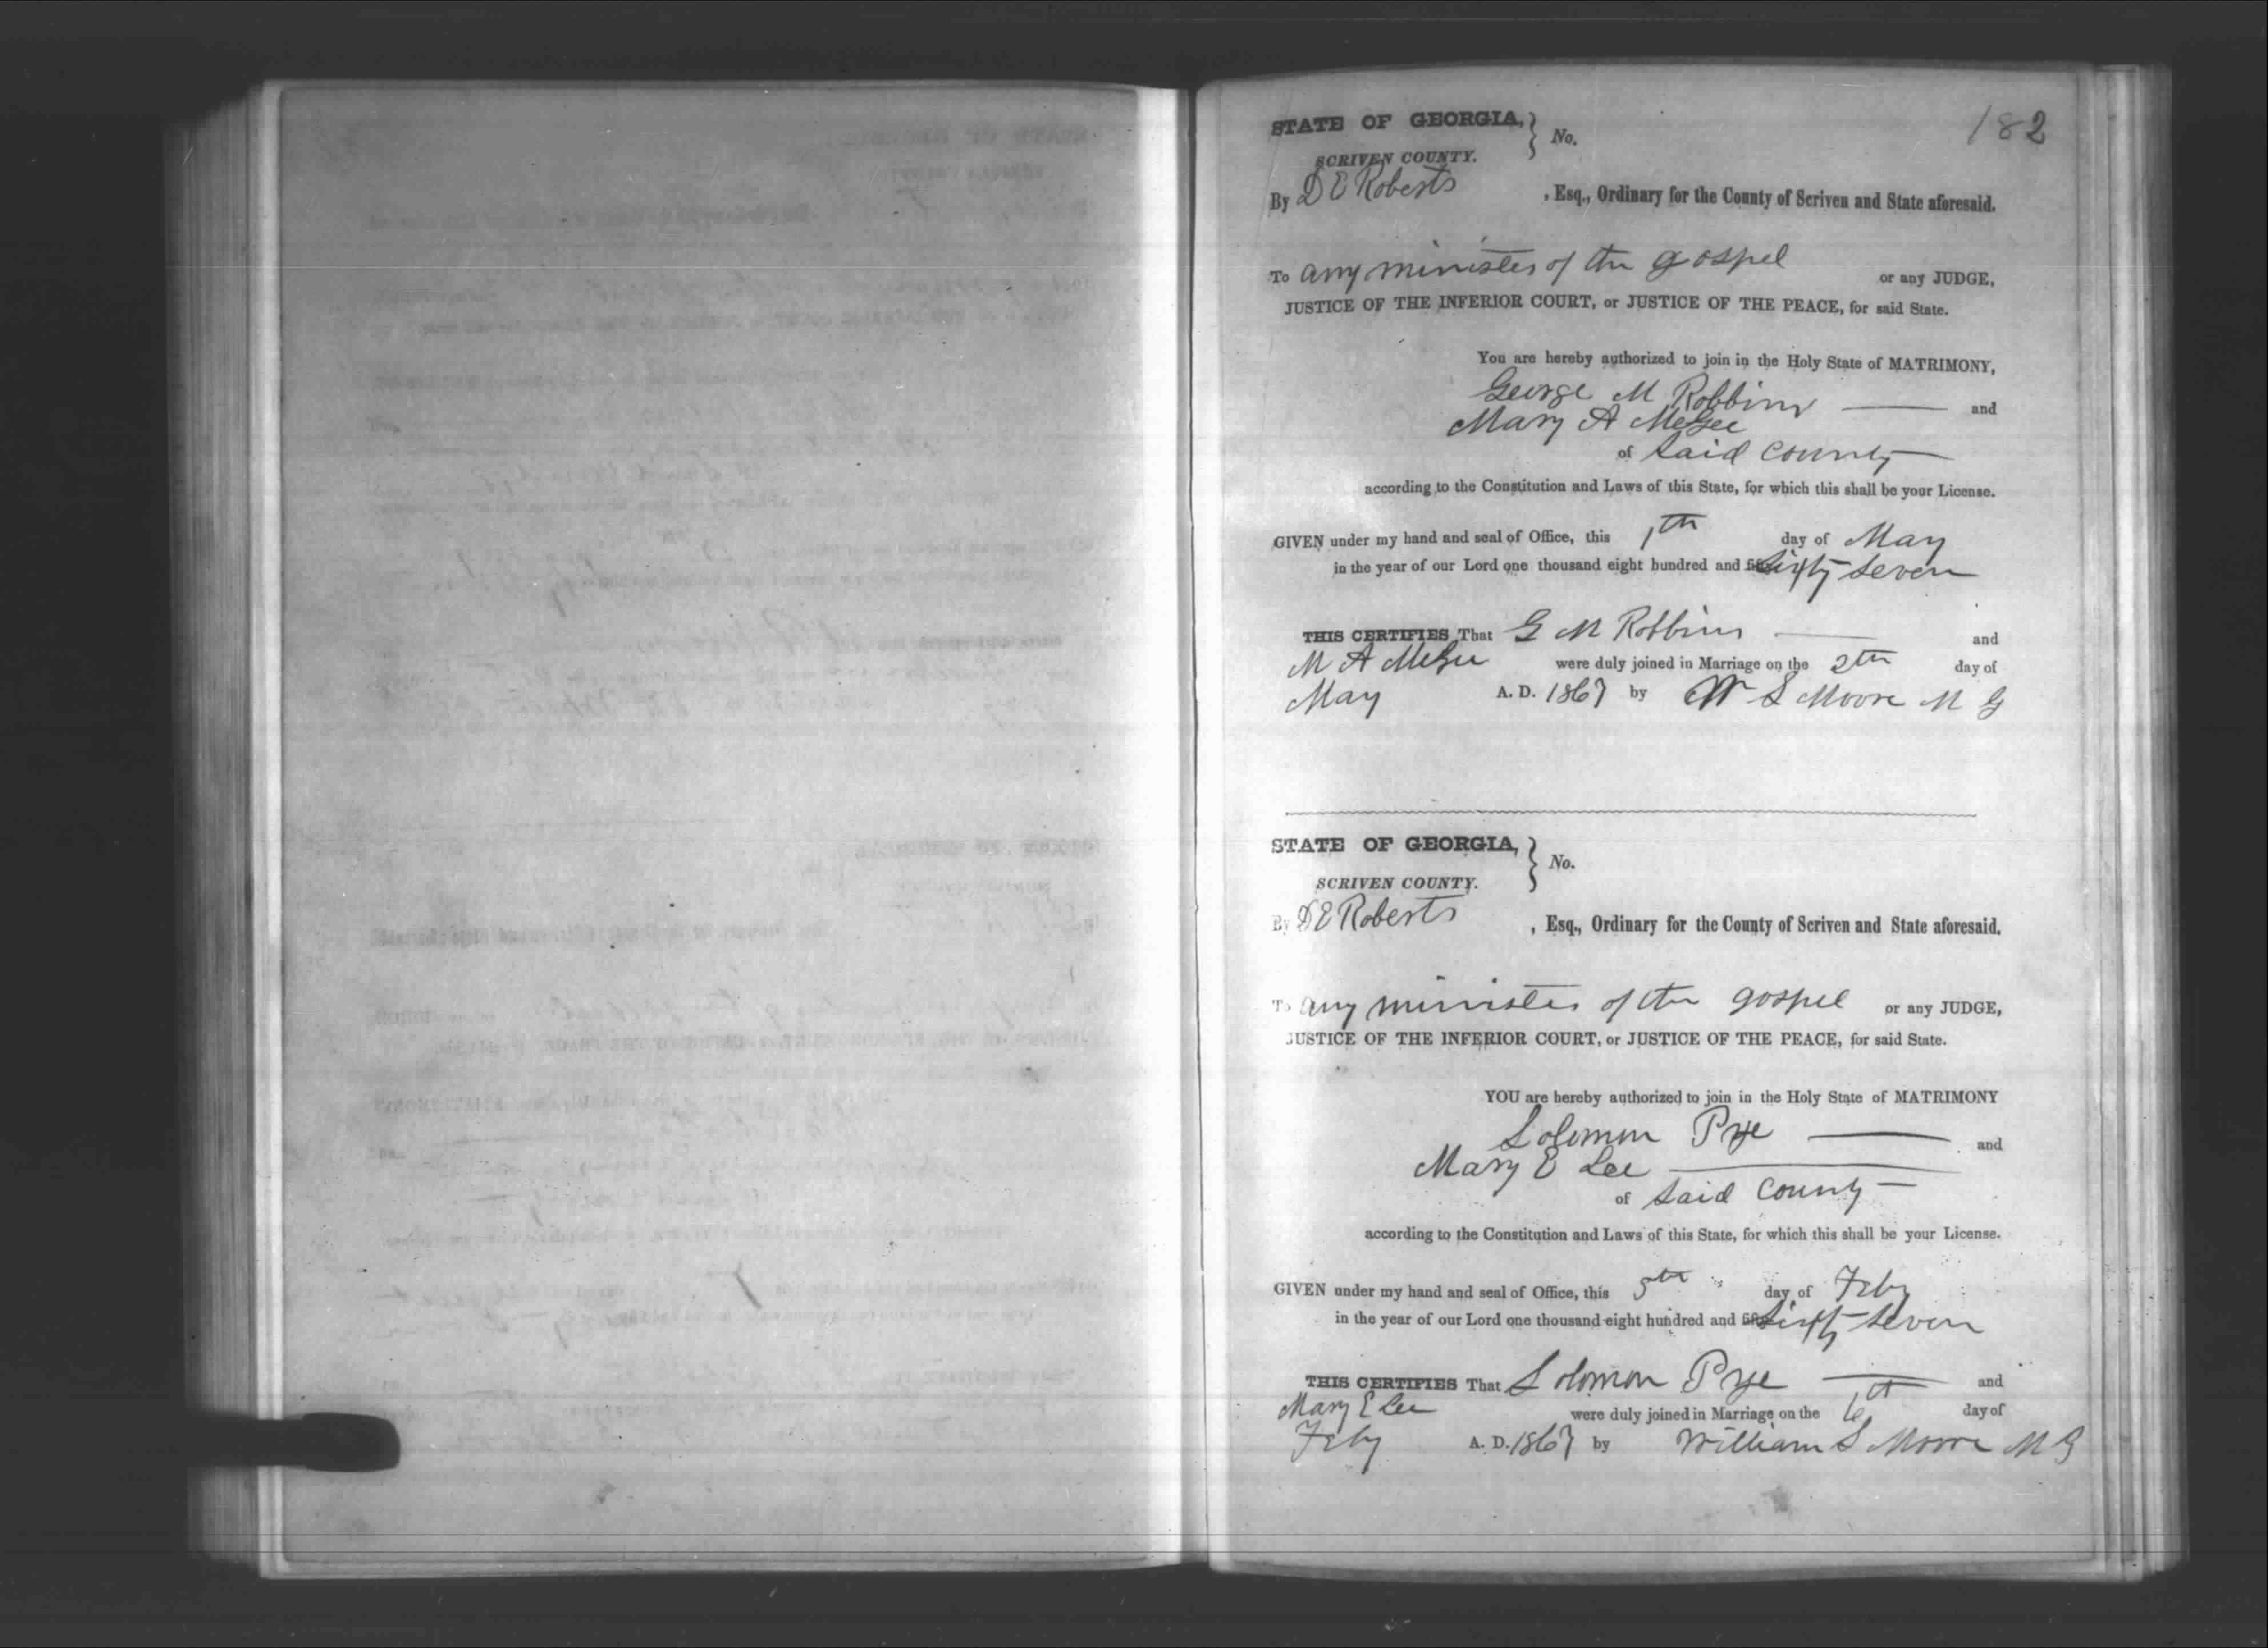 182
STATE OF GEORGIA, } No.
SCRIVEN COUNTY.
By D E Roberts , Esq., Ordinary for the County of Scriven and State aforesaid.
To any minister of the gospel or any JUDGE,
JUSTICE OF THE INFERIOR COURT, or JUSTICE OF THE PEACE, for said State.
You are hereby authorized to join in the Holy State of MATRIMONY,
George M Robbins — and
Mary A McGee
of said County —
according to the Constitution and Laws of this State, for which this shall be your License.
GIVEN under my hand and seal of Office, this 1th day of May
in the year of our Lord one thousand eight hundred and Sixty Seven
THIS CERTIFIES That G M Robbins — and
M A McGee were duly joined in Marriage on the 2th day of
May A. D. 1867 by W S Moore M G
STATE OF GEORGIA, } No.
SCRIVEN COUNTY.
By D E Roberts , Esq., Ordinary for the County of Scriven and State aforesaid.
To any minister of the gospel or any JUDGE,
JUSTICE OF THE INFERIOR COURT, or JUSTICE OF THE PEACE, for said State.
YOU are hereby authorized to join in the Holy State of MATRIMONY
Solomon Pye — and
Mary E Lee —
of said County —
according to the Constitution and Laws of this State, for which this shall be your License.
GIVEN under my hand and seal of Office, this 5th day of Feby
in the year of our Lord one thousand eight hundred and Sixty Seven
THIS CERTIFIES That Solomon Pye — and
Mary E Lee were duly joined in Marriage on the 6th day of
Feby A. D. 1867 by William S Moore M G